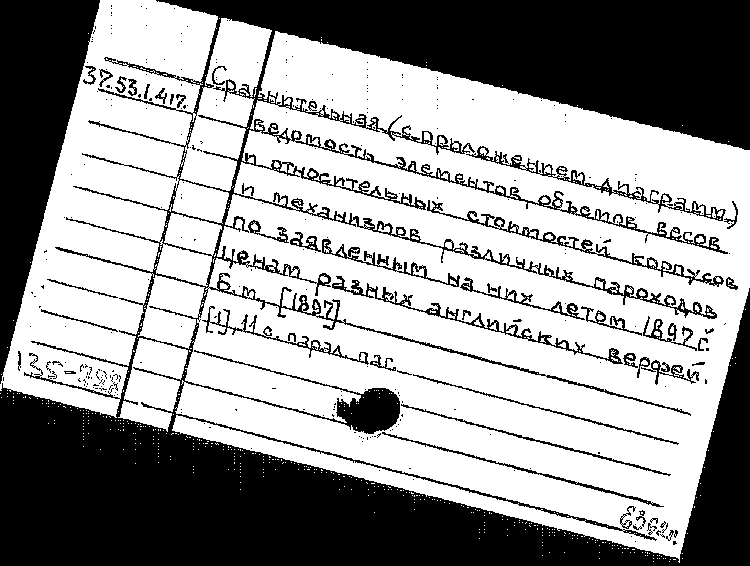 37.53.1.417.
Сравнительная (с приложением диаграмм)
ведомость элементов, объемов, весов
и относительных стоимостей корпусов
и механизмов различных пароходов
по заявленным на них летом 1897 г.
ценам разных английских верфей.
Б.м., [1897].
[1], 11 с. парал. паг.
135-798